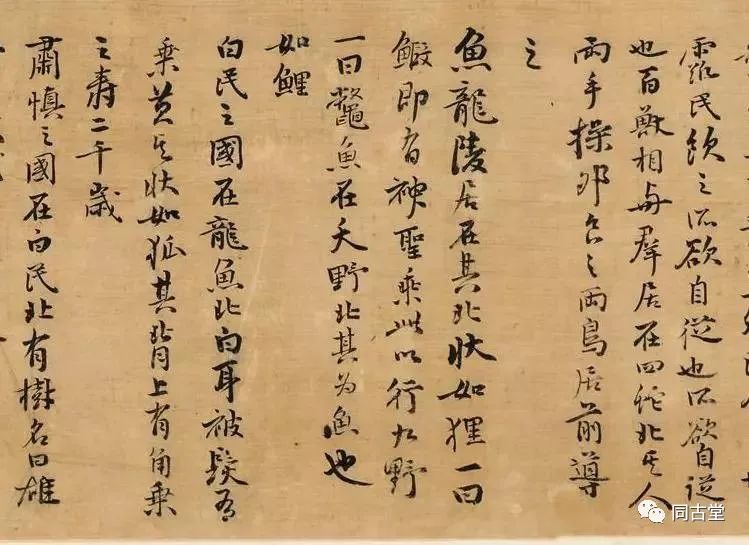 露民飲之所欲自從也所欲自從
也百獸相與群居在四蛇北其人
兩手操卵食之兩鳥居前導
之
魚龍陵居在其北狀如狸一曰
鰕即有神聖乘此以行九野
一曰鱉魚在夭野北其為魚也
如鯉
白民之國在龍魚北白耳被髮有
乘黃其狀如狐其背上有角乘
之壽二千歲
肅慎之國在白民北有樹名曰雄
同古堂